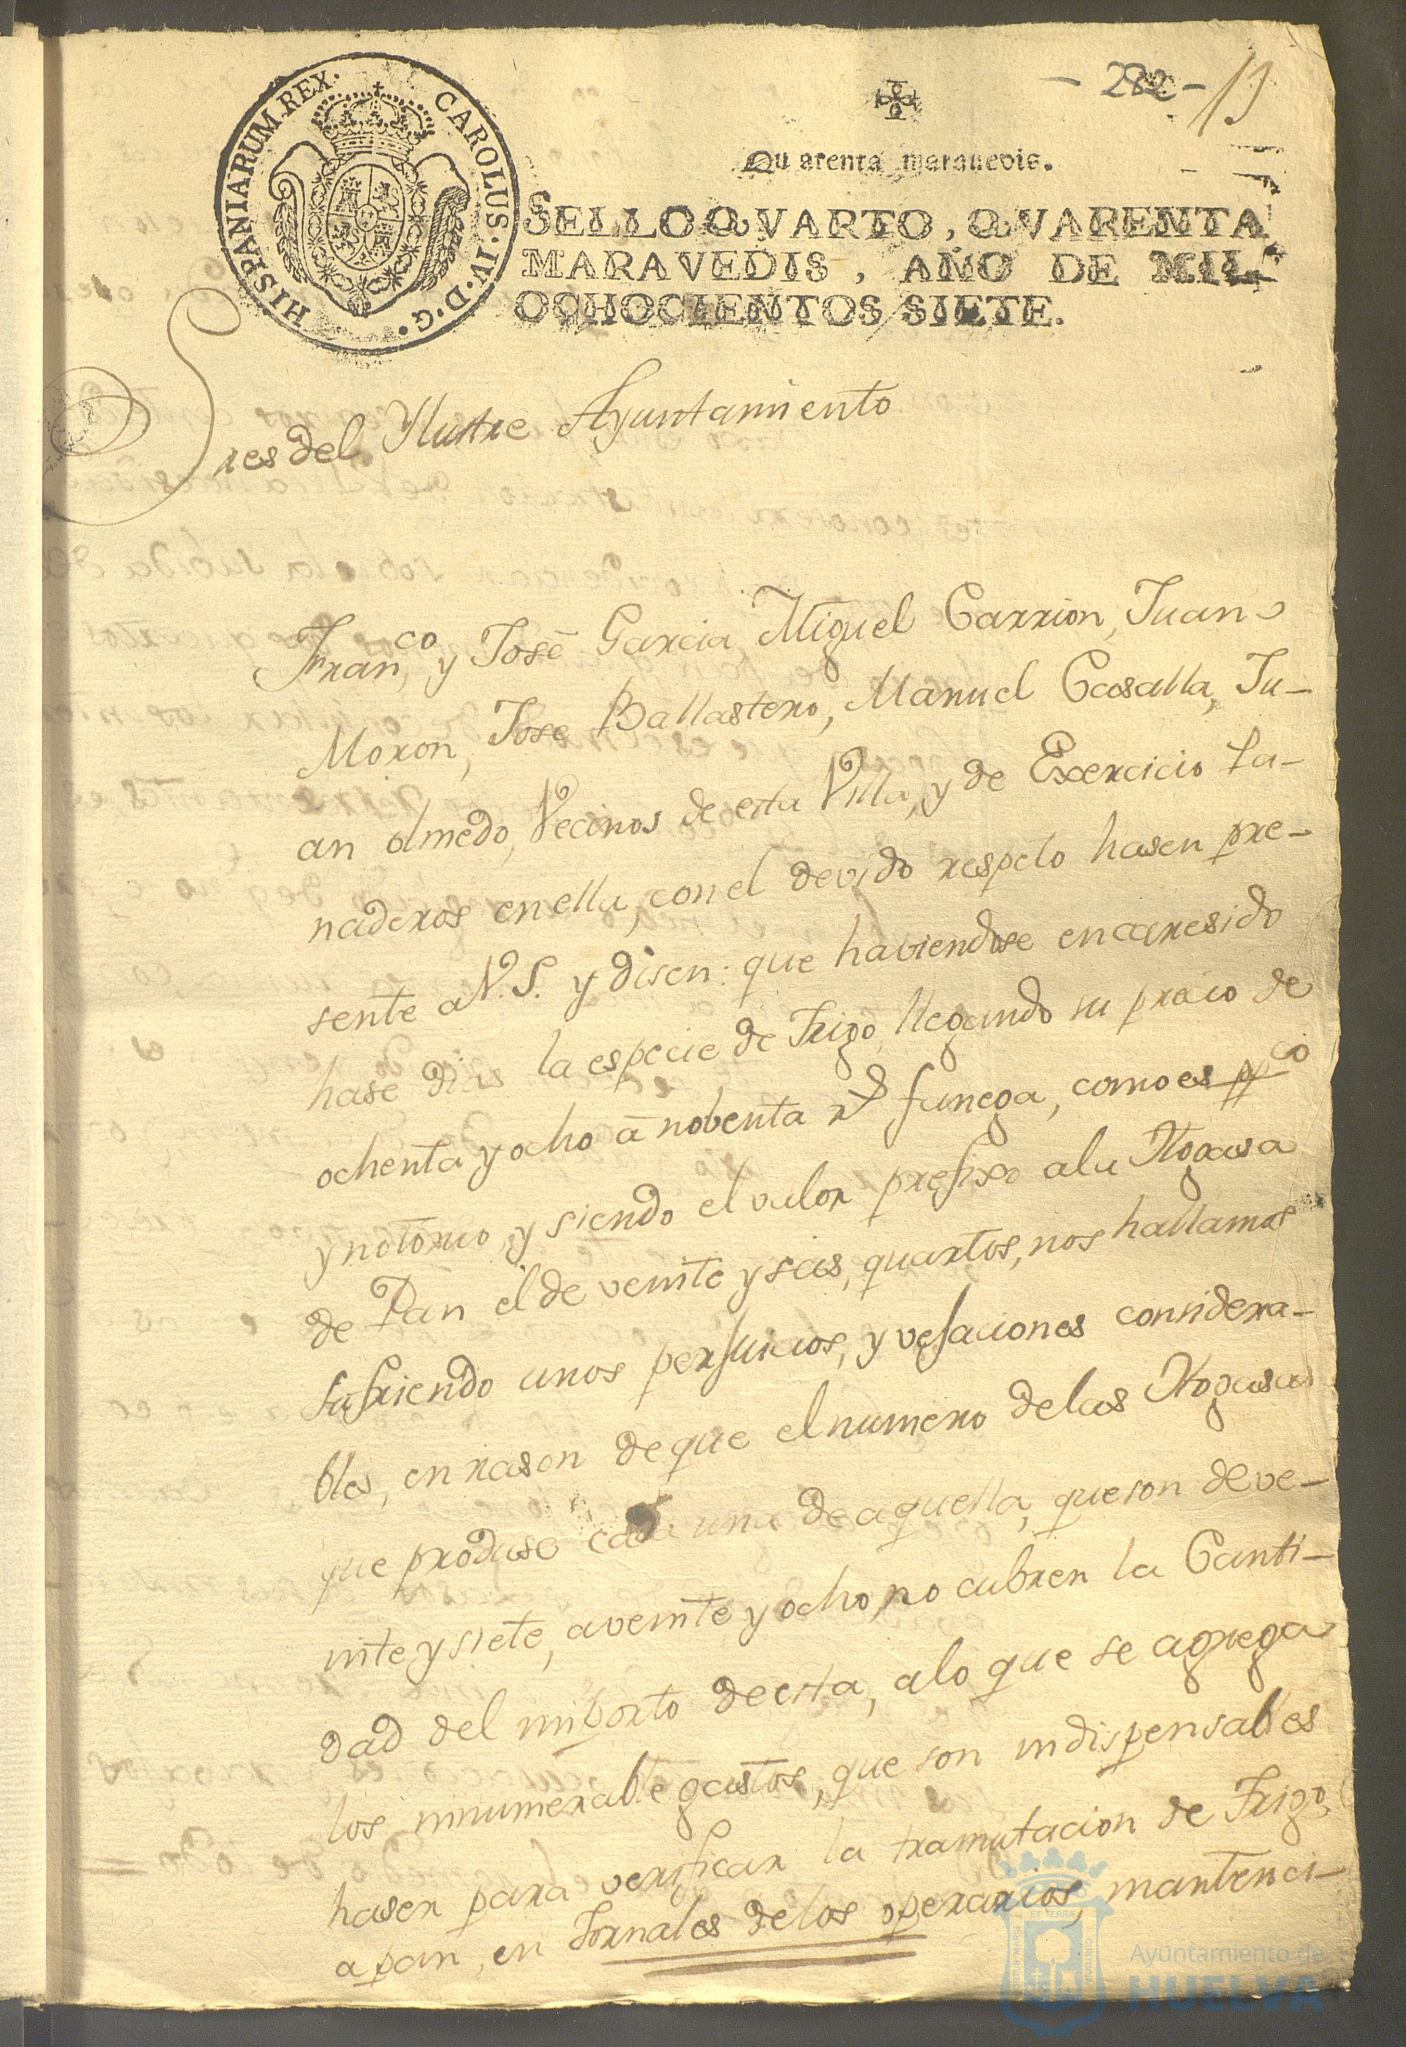 - 282 - 13
HISPANIARUM.REX. CAROLUS.IV.D.G.
Quarenta maravedis.
SELLO QVARTO, QVARENTA
MARAVEDIS, AÑO DE MIL
OCHOCIENTOS SIETE.
Sres del Ylustre Ayuntamiento
Franco, y Josê Garcia, Miguel Carrion, Juan
Moron, Jose Ballastero, Manuel Casalla, Ju-
an olmedo, Vecinos de esta Villa, y de Exercicio Pa-
naderos en ella, con el devido respeto hasen pre-
sente a V.S. y disen: que haviendose encaresido
hase dias la especie de Trigo, llegando su precio de
ochenta y ocho â nobenta rs fanega, como es ppco
y notorio, y siendo el valor prefixo a la Hogasa
de Pan el de veinte y seis, quartos, nos hallamos
sufriendo unos perjuicios, y vejaciones considera-
bles, en rason de que el numero de las Hogasas
que produse cada una de aquella, que son de ve-
inte y siete, a veinte y ocho, no cubren la Canti-
dad del importo de esta, a lo que se agrega
los innumerable gastos, que son indispensables
hasen para verificar la tramutacion de Trigo
a pan, en Jornales de los operarios, mantenci-
Ayuntamiento de
HUELVA